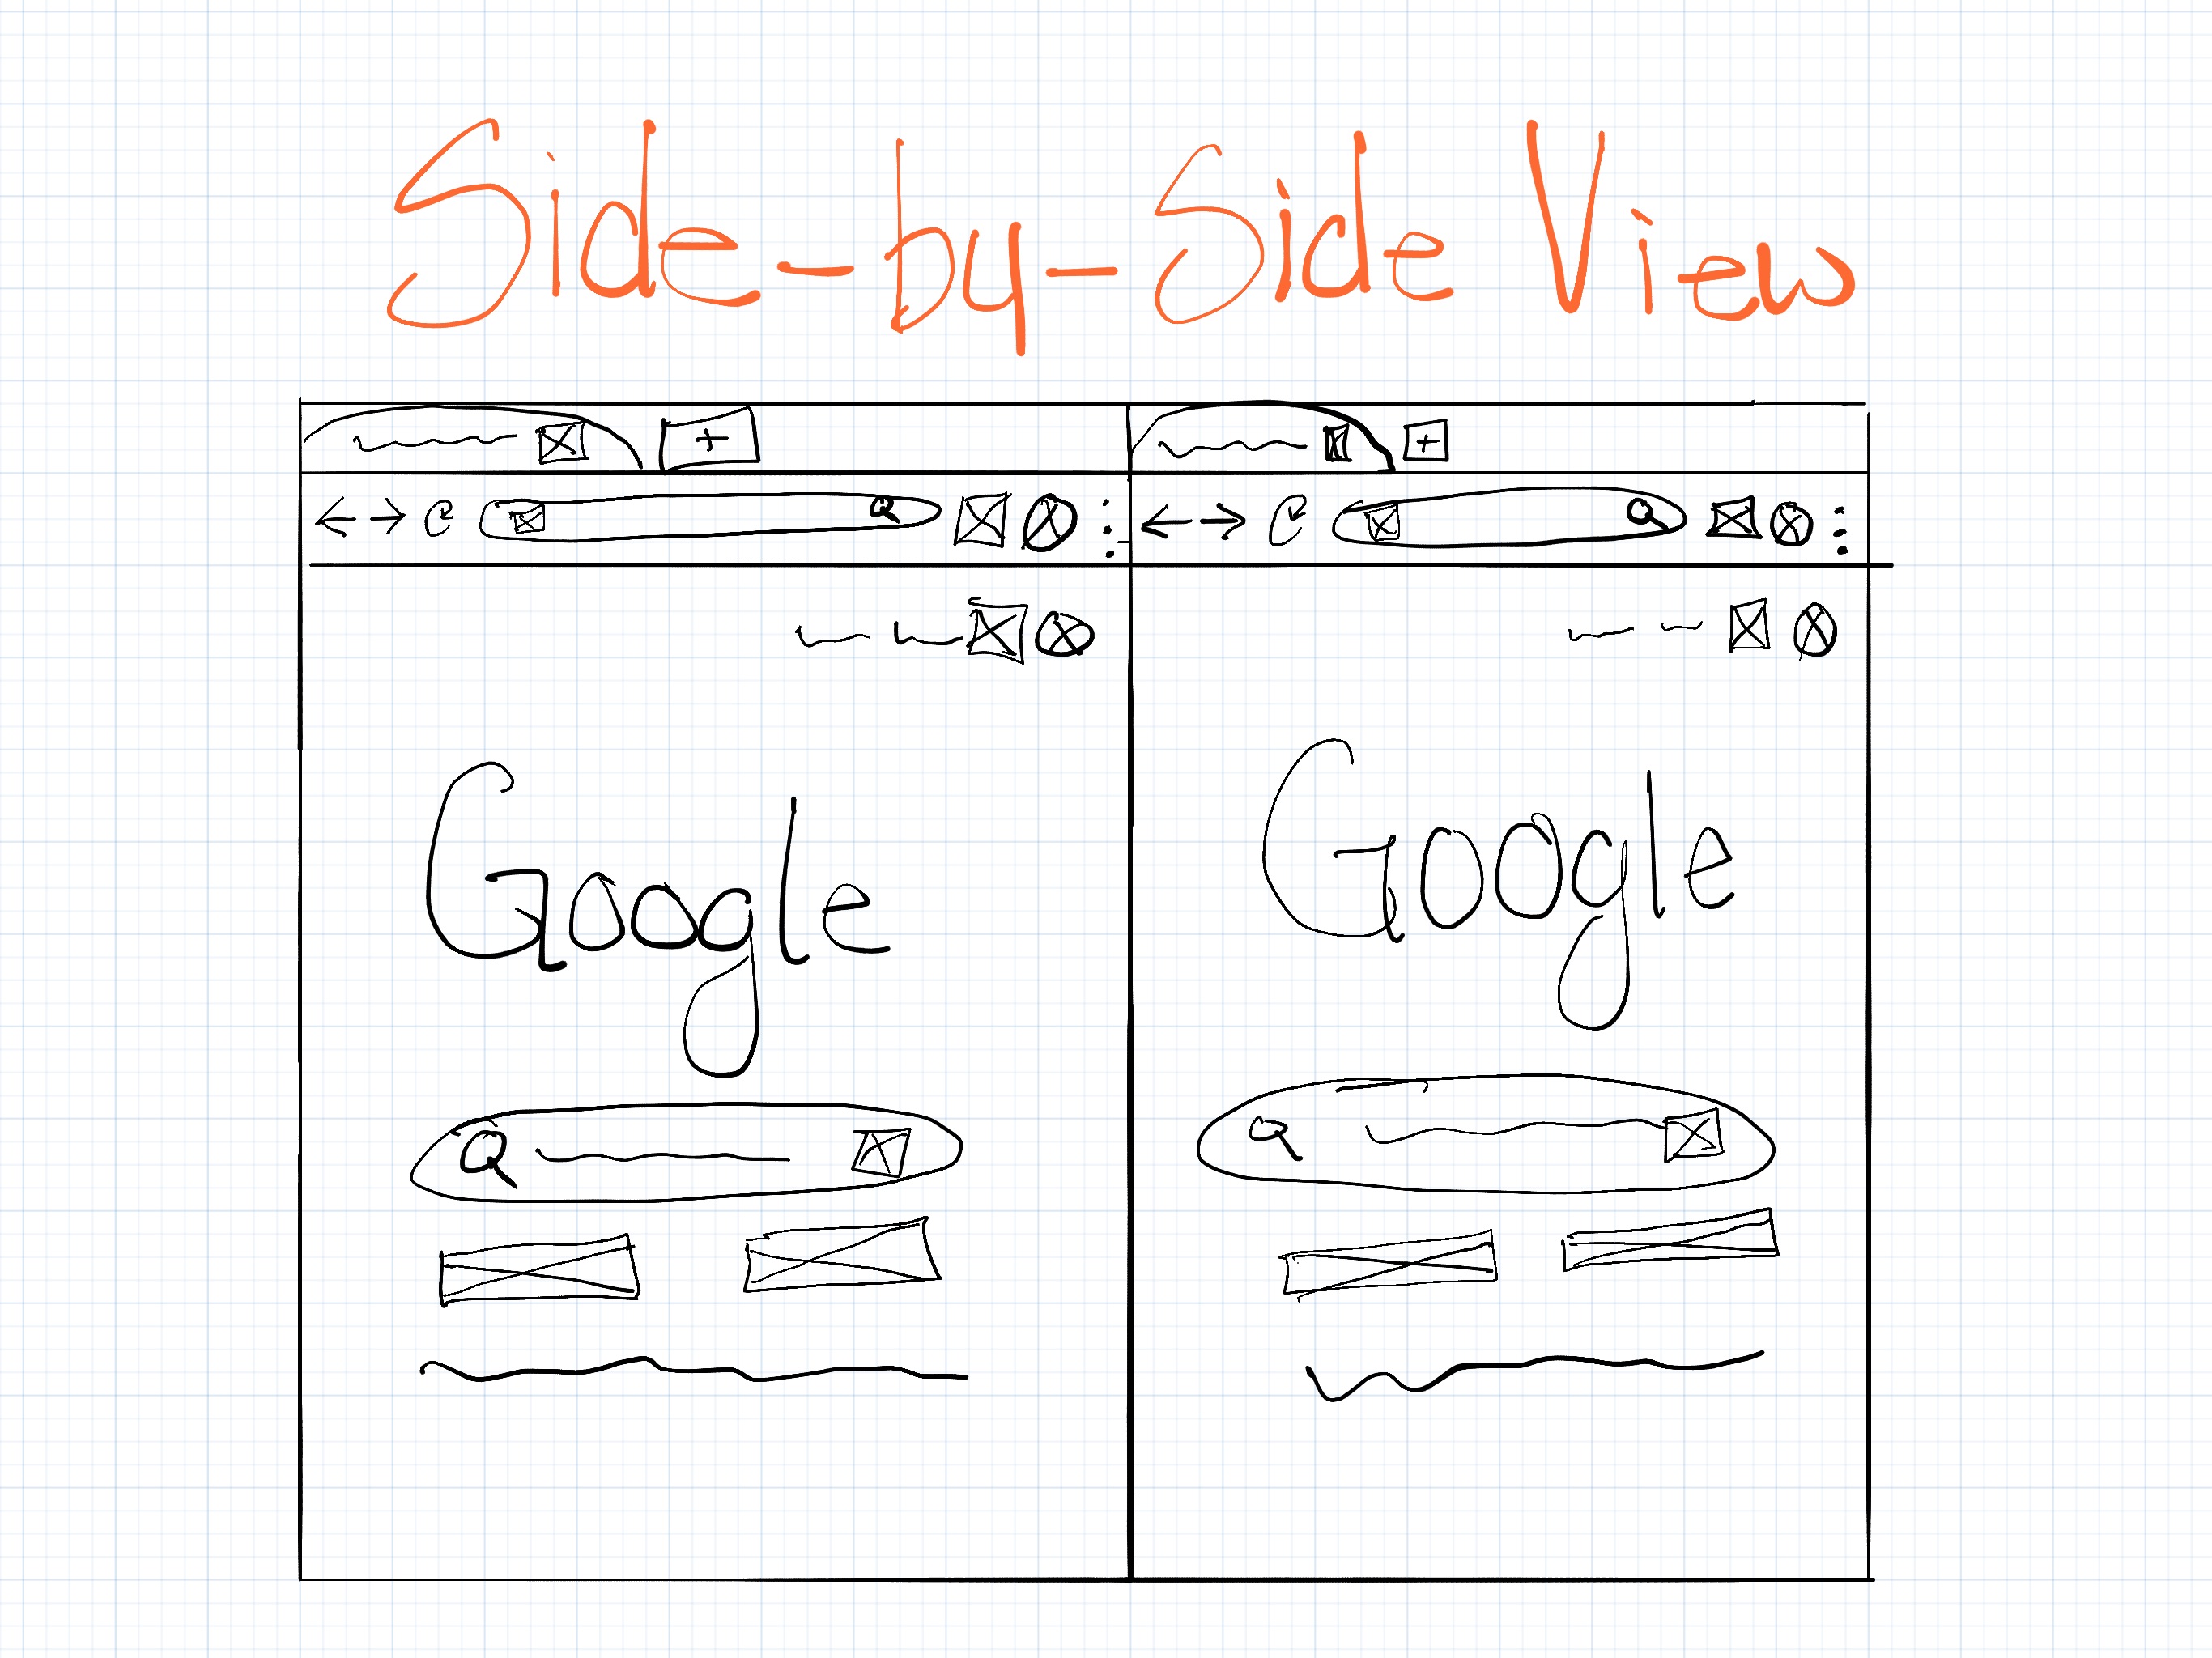 Side-by-Side View
+
+
Google
Google